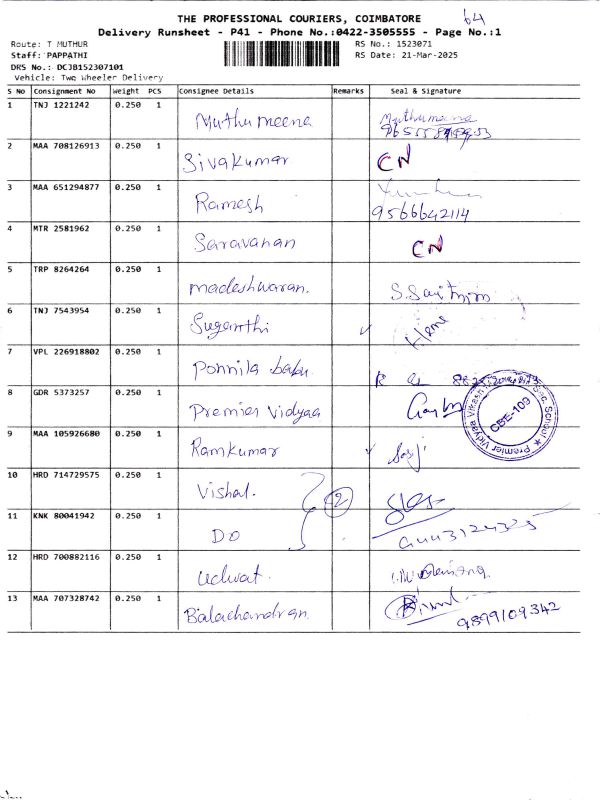 THE PROFESSIONAL COURIERS, COIMBATORE
64
Delivery Runsheet - P41 - Phone No.:0422-3505555 - Page No.:1
Route: T MUTHUR
RS No.: 1523071
Staff: PAPPATHI
RS Date: 21-Mar-2025
DRS No.: DCJB152307101
Vehicle: Two Wheeler Delivery
S No Consignment No Weight PCS Consignee Details Remarks Seal & Signature
1 TNJ 1221242 0.250 1 Muthumeena Muthumeena
2 MAA 708126913 0.250 1 Sivakumar CN
3 MAA 651294877 0.250 1 Ramesh
9566642114
4 MTR 2581962 0.250 1 Saravanan CN
5 TRP 8264264 0.250 1 madeshwaran.
6 TNJ 7543954 0.250 1 Suganthi
7 VPL 226918802 0.250 1 Ponnila babu
8 GDR 5373257 0.250 1 Premier Vidyaa
Premier Vidyaa Vikash Sec. School
CBE-109
9 MAA 105926680 0.250 1 Ramkumar
10 HRD 714729575 0.250 1 Vishal. 2
11 KNK 80041942 0.250 1 DO
12 HRD 700882116 0.250 1
13 MAA 707328742 0.250 1 Balachandran
9899109342